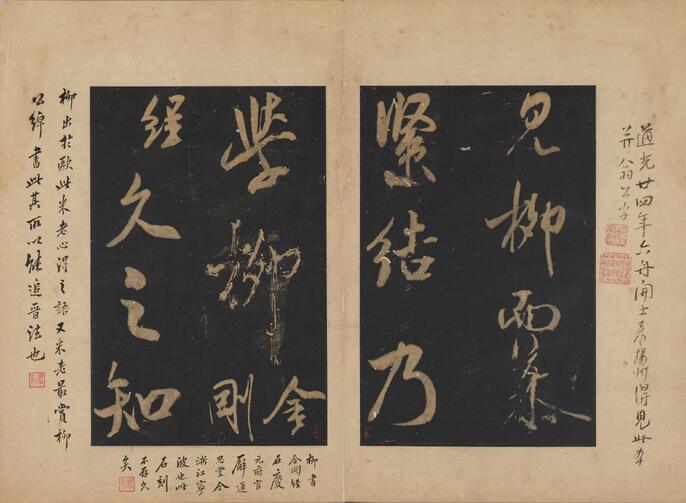 道光廿四年六舟開士来揚州得見此本
見柳而慕
緊結乃
學柳金剛
經久之知
柳書
金剛經
在慶
元府官
廨進
思堂今
浙江寧
波也此
石刻
不存久
矣
柳出於歐此米老心得之語又米老最賞柳
公綽書此其所以能追晉法也